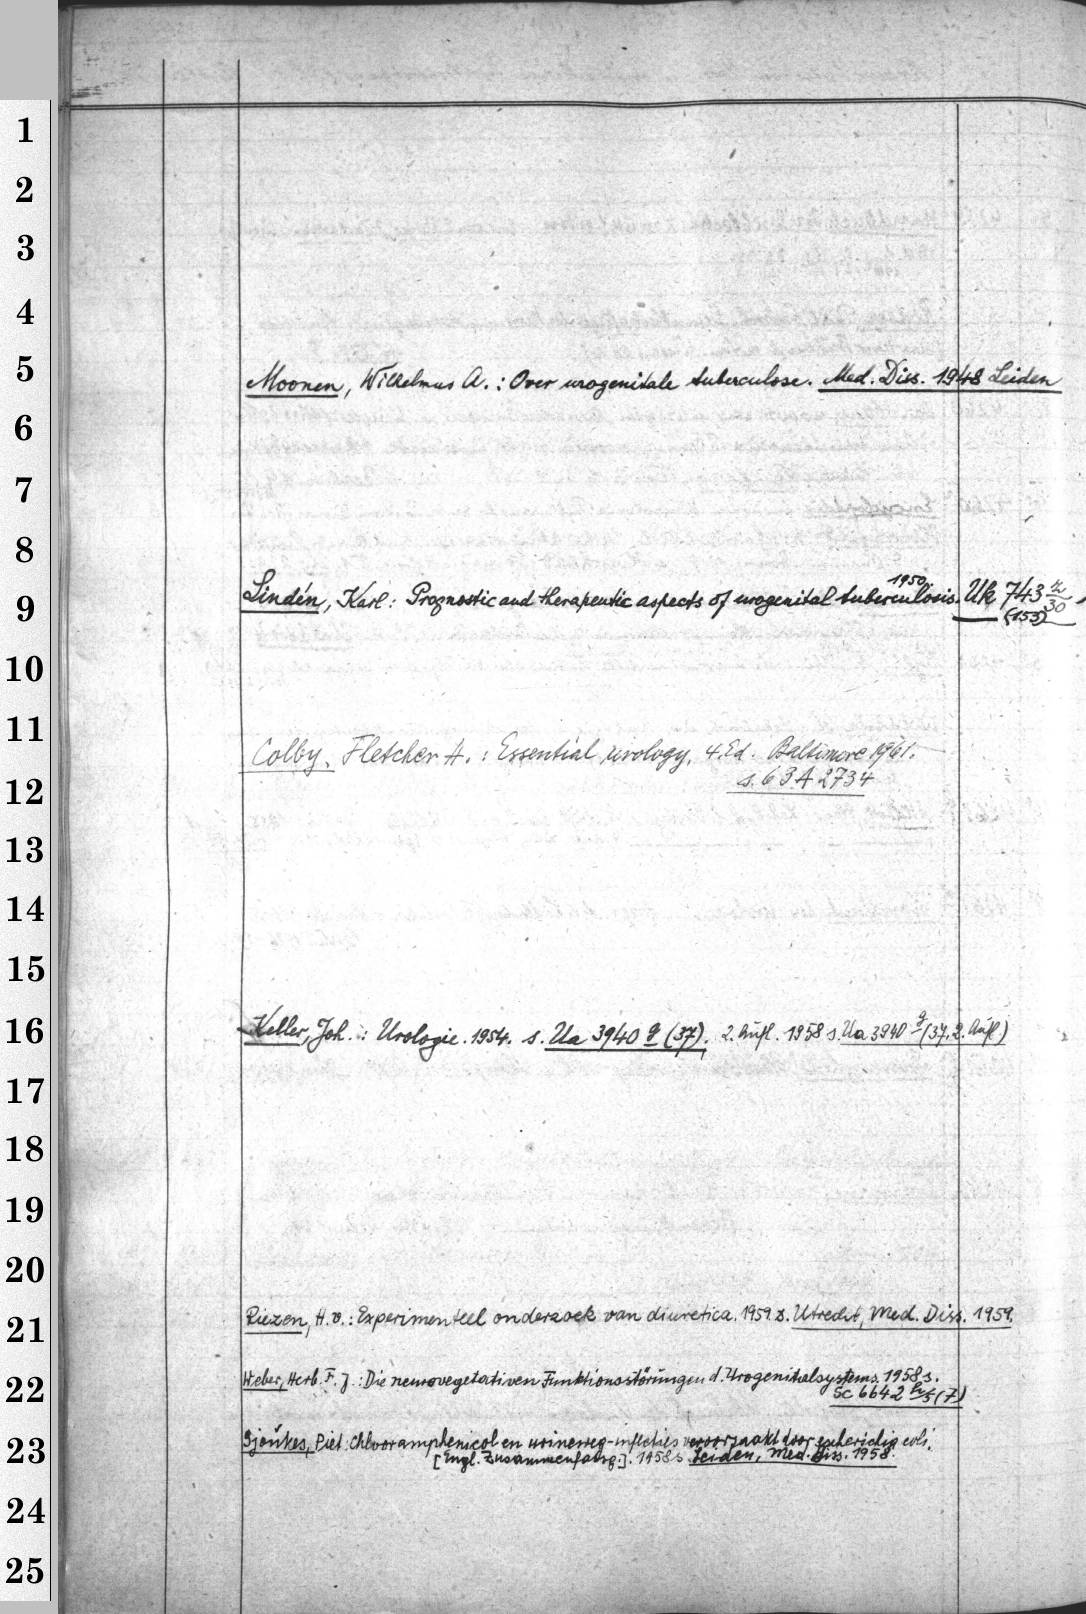 1
2
3
4
5
Moonen, Wilhelmus A.: Over urogenitale tuberculose. Med. Diss. 1948 Leiden
6
7
8
9
1950.
Lindén, Karl: Prognostic and therapeutic aspects of urogenital tuberculosis. Uk 743 n/30
(153)
10
11
Colby, Fletcher H.: Essential urology, 4. Ed. Baltimore 1961.
s. 63 A 2734
12
13
14
15
16
Keller, Joh.: Urologie. 1954. s. Ua 3940 g (37). 2. Aufl. 1958 s. Ua 3940 g (37, 2. Aufl)
17
18
19
20
21
Riezen, H. v.: Experimenteel onderzoek van diuretica. 1959 s. Utrecht, Med. Diss. 1959.
22
Weber, Herb. F. J.: Die neurovegetativen Funktionsstörungen d. Urogenitalsystems. 1958 s.
Sc 6642 /5 (7)
23
Sjoúkes, Piet: Chlooramphenicol en urineweg-infecties veroorzaakt door escherichia coli.
[Engl. Zusammenfassg.]. 1958 s. Leiden, Med. Diss. 1958.
24
25